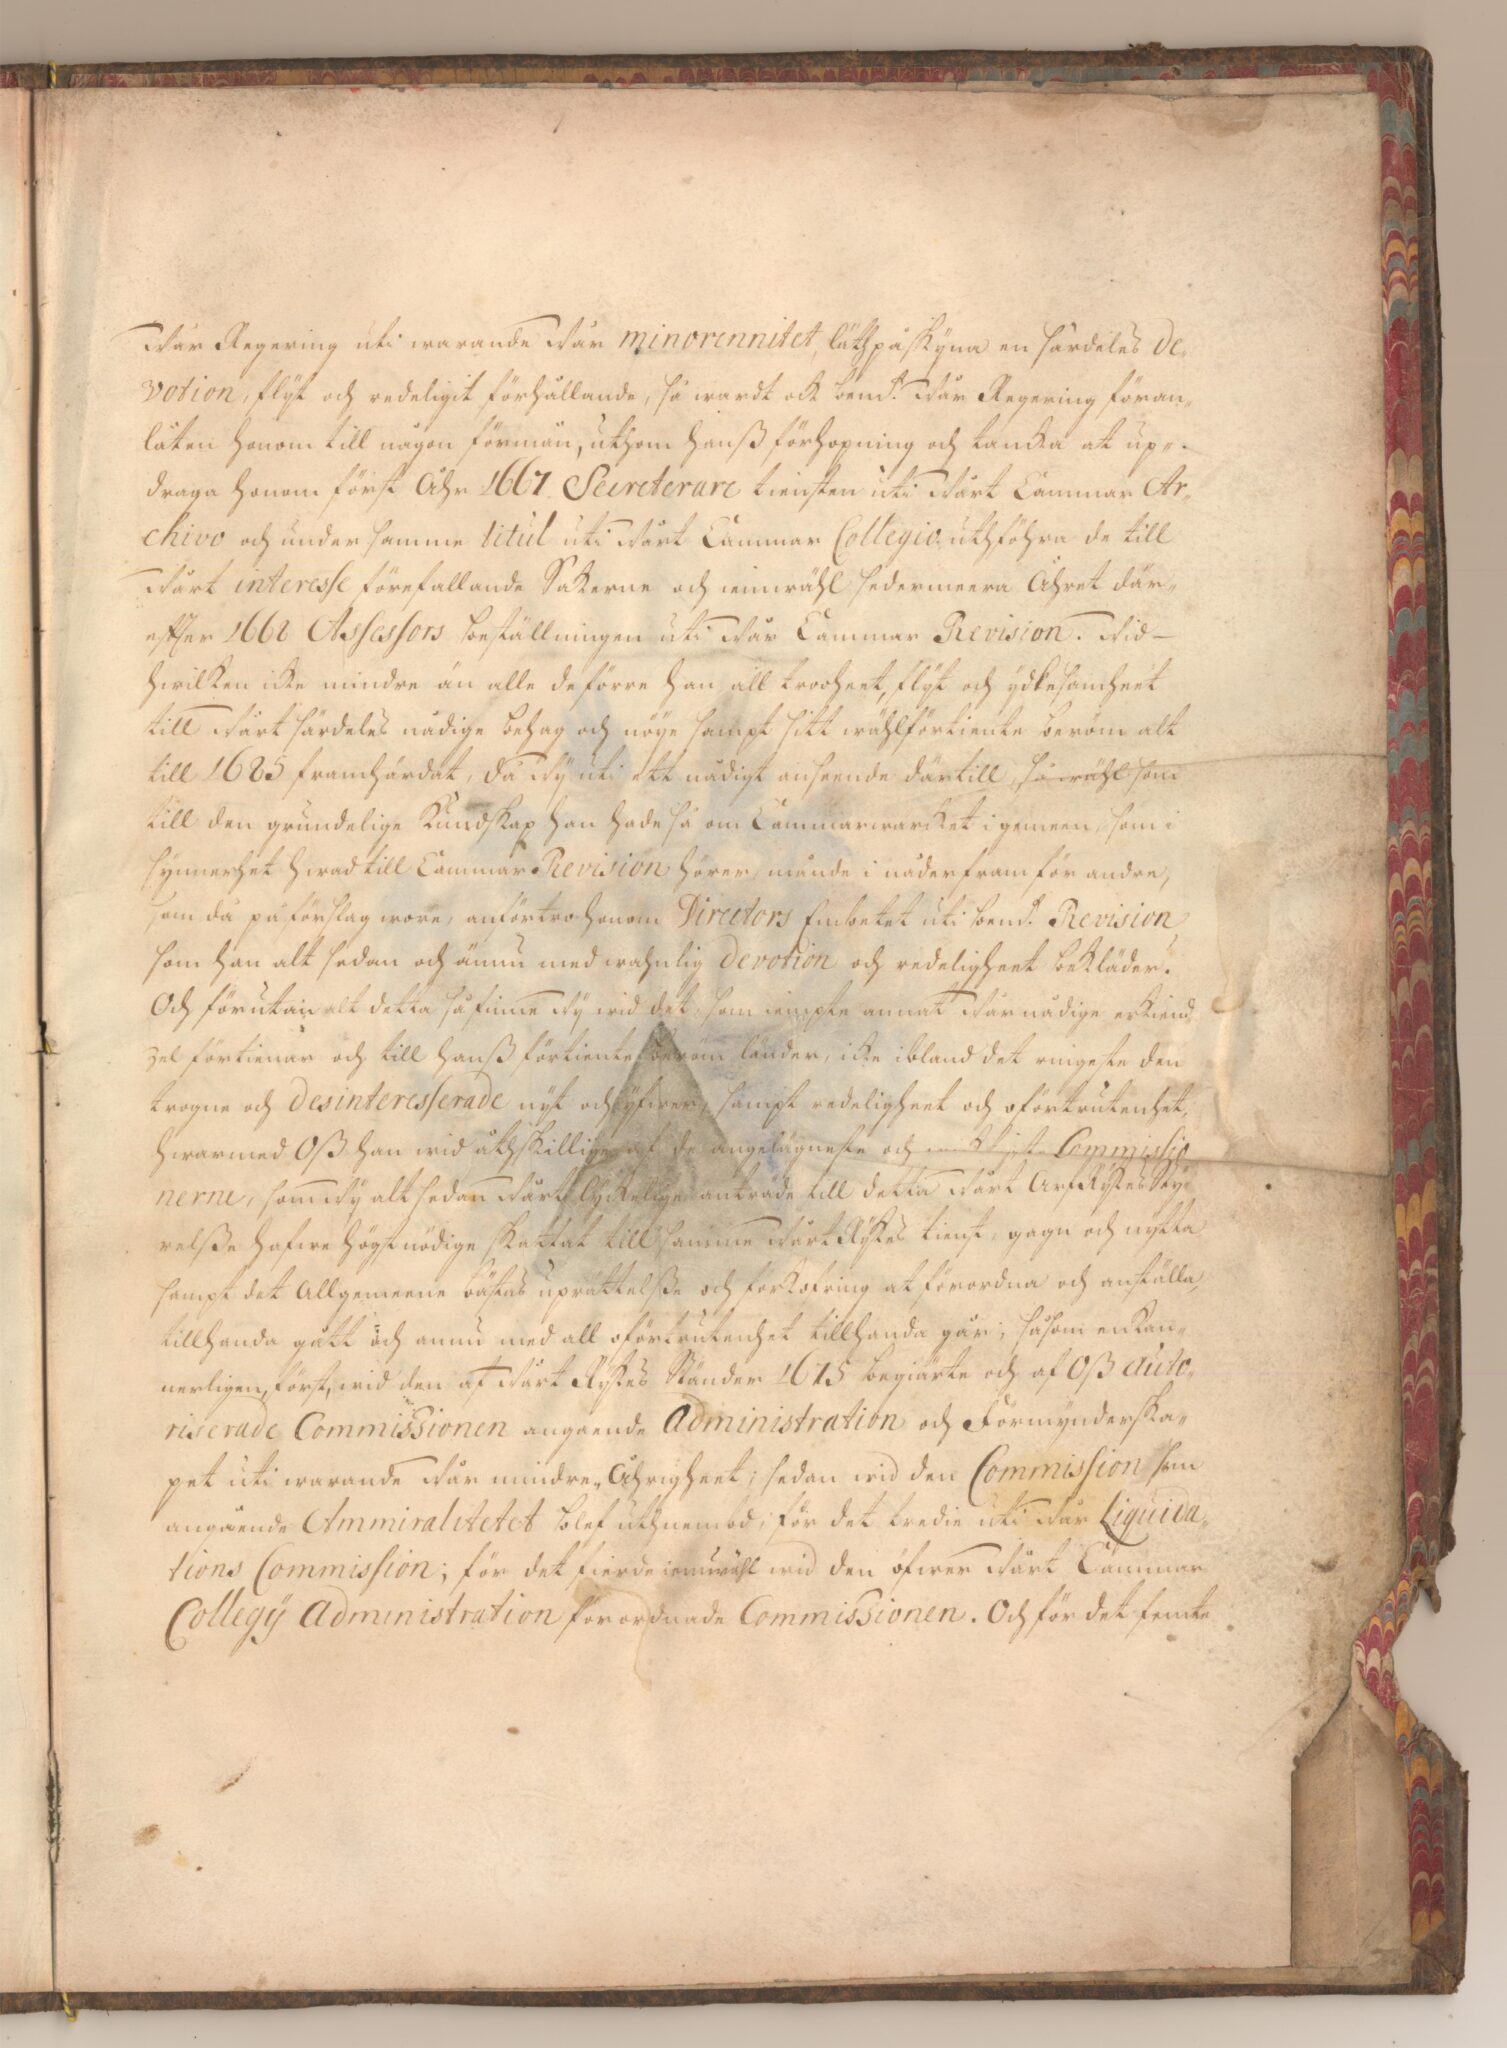 Wår Regering uti warande Wår minorennitet, låthpåskyna en särdeles De-
votion, flijt och redeligit förhållande, så wardt ock bem:t Wår Regering föran-
låten honom till någon förmån, uthom hanß förhopning och tancka at up-
draga honom först Åhr 1667 Secreterare tiensten uti Wårt Cammar Ar-
chivo och under samme titul uti Wårt Cammar Collegio uthföhra de till
Wårt interesse förefallande Sakerne och iemwähl sedermeera Åhret där-
effter 1668 Assessors beställningen uti Wår Cammar Revision. Wid
hwilken icke mindre än alle de förre han all trooheet, flijt och ydkesamheet
till Wårt särdeles nådige behag och nöye sampt sitt wählförtiente beröm alt
till 1685 framhärdat, då Wij uti ett nådigt anseende därtill, så wähl som
till den grundelige Kundskap han hade så om Cammarwärcket i gemeen, som i
synnerhet hwad till Cammar Revision hörer, månde i nåder fram för andre,
som då på förslag wore, anförtro honom Directors Embetet uti bem:t Revision
som han alt sedan och ännu med wahnlig devotion och redeligheet bekläder.
Och förutan alt detta så finne Wij wid det, som iempte annat Wår nådige erkiend-
zel förtienar och till hanß förtiente beröm länder, icke ibland det ringeste den
trogne och desinteresserade nijt och yfwer, sampt redeligheet och oförtrutenhet,
hwarmed Oß han wid åthskillige af de angelägneste och Commissio
nerne, som Wij alt sedan Wårt lyckelige anträde till detta Wårt Arf Rijkes Sty-
relsße hafwe högst nödige skattat till samme Wårt Rijkes tienst, gagn och nytta
sampt det Allgemeene bästas uprättelsße och förkofring at förordna och anställa,
tillhanda gått och annu med all oförtrutenhet tillhanda går; såsom enkan-
nerligen, först, wid den af Wårt Rijkes Ständer 1675 begiärte och af Oß auto-
riserade Commissionen angaende Administration och Förmynderska-
pet uti warande Wår mindre Åhrigheet; sedan wid den Commission som
angaende Ammiralitetet blef uthnembd; för det tredie uti Wår Liquida-
tions Commission; för det fierde iemwähl wid den öfwer Wårt Cammar
Collegij Administration förordnade Commissionen. Och för det femte